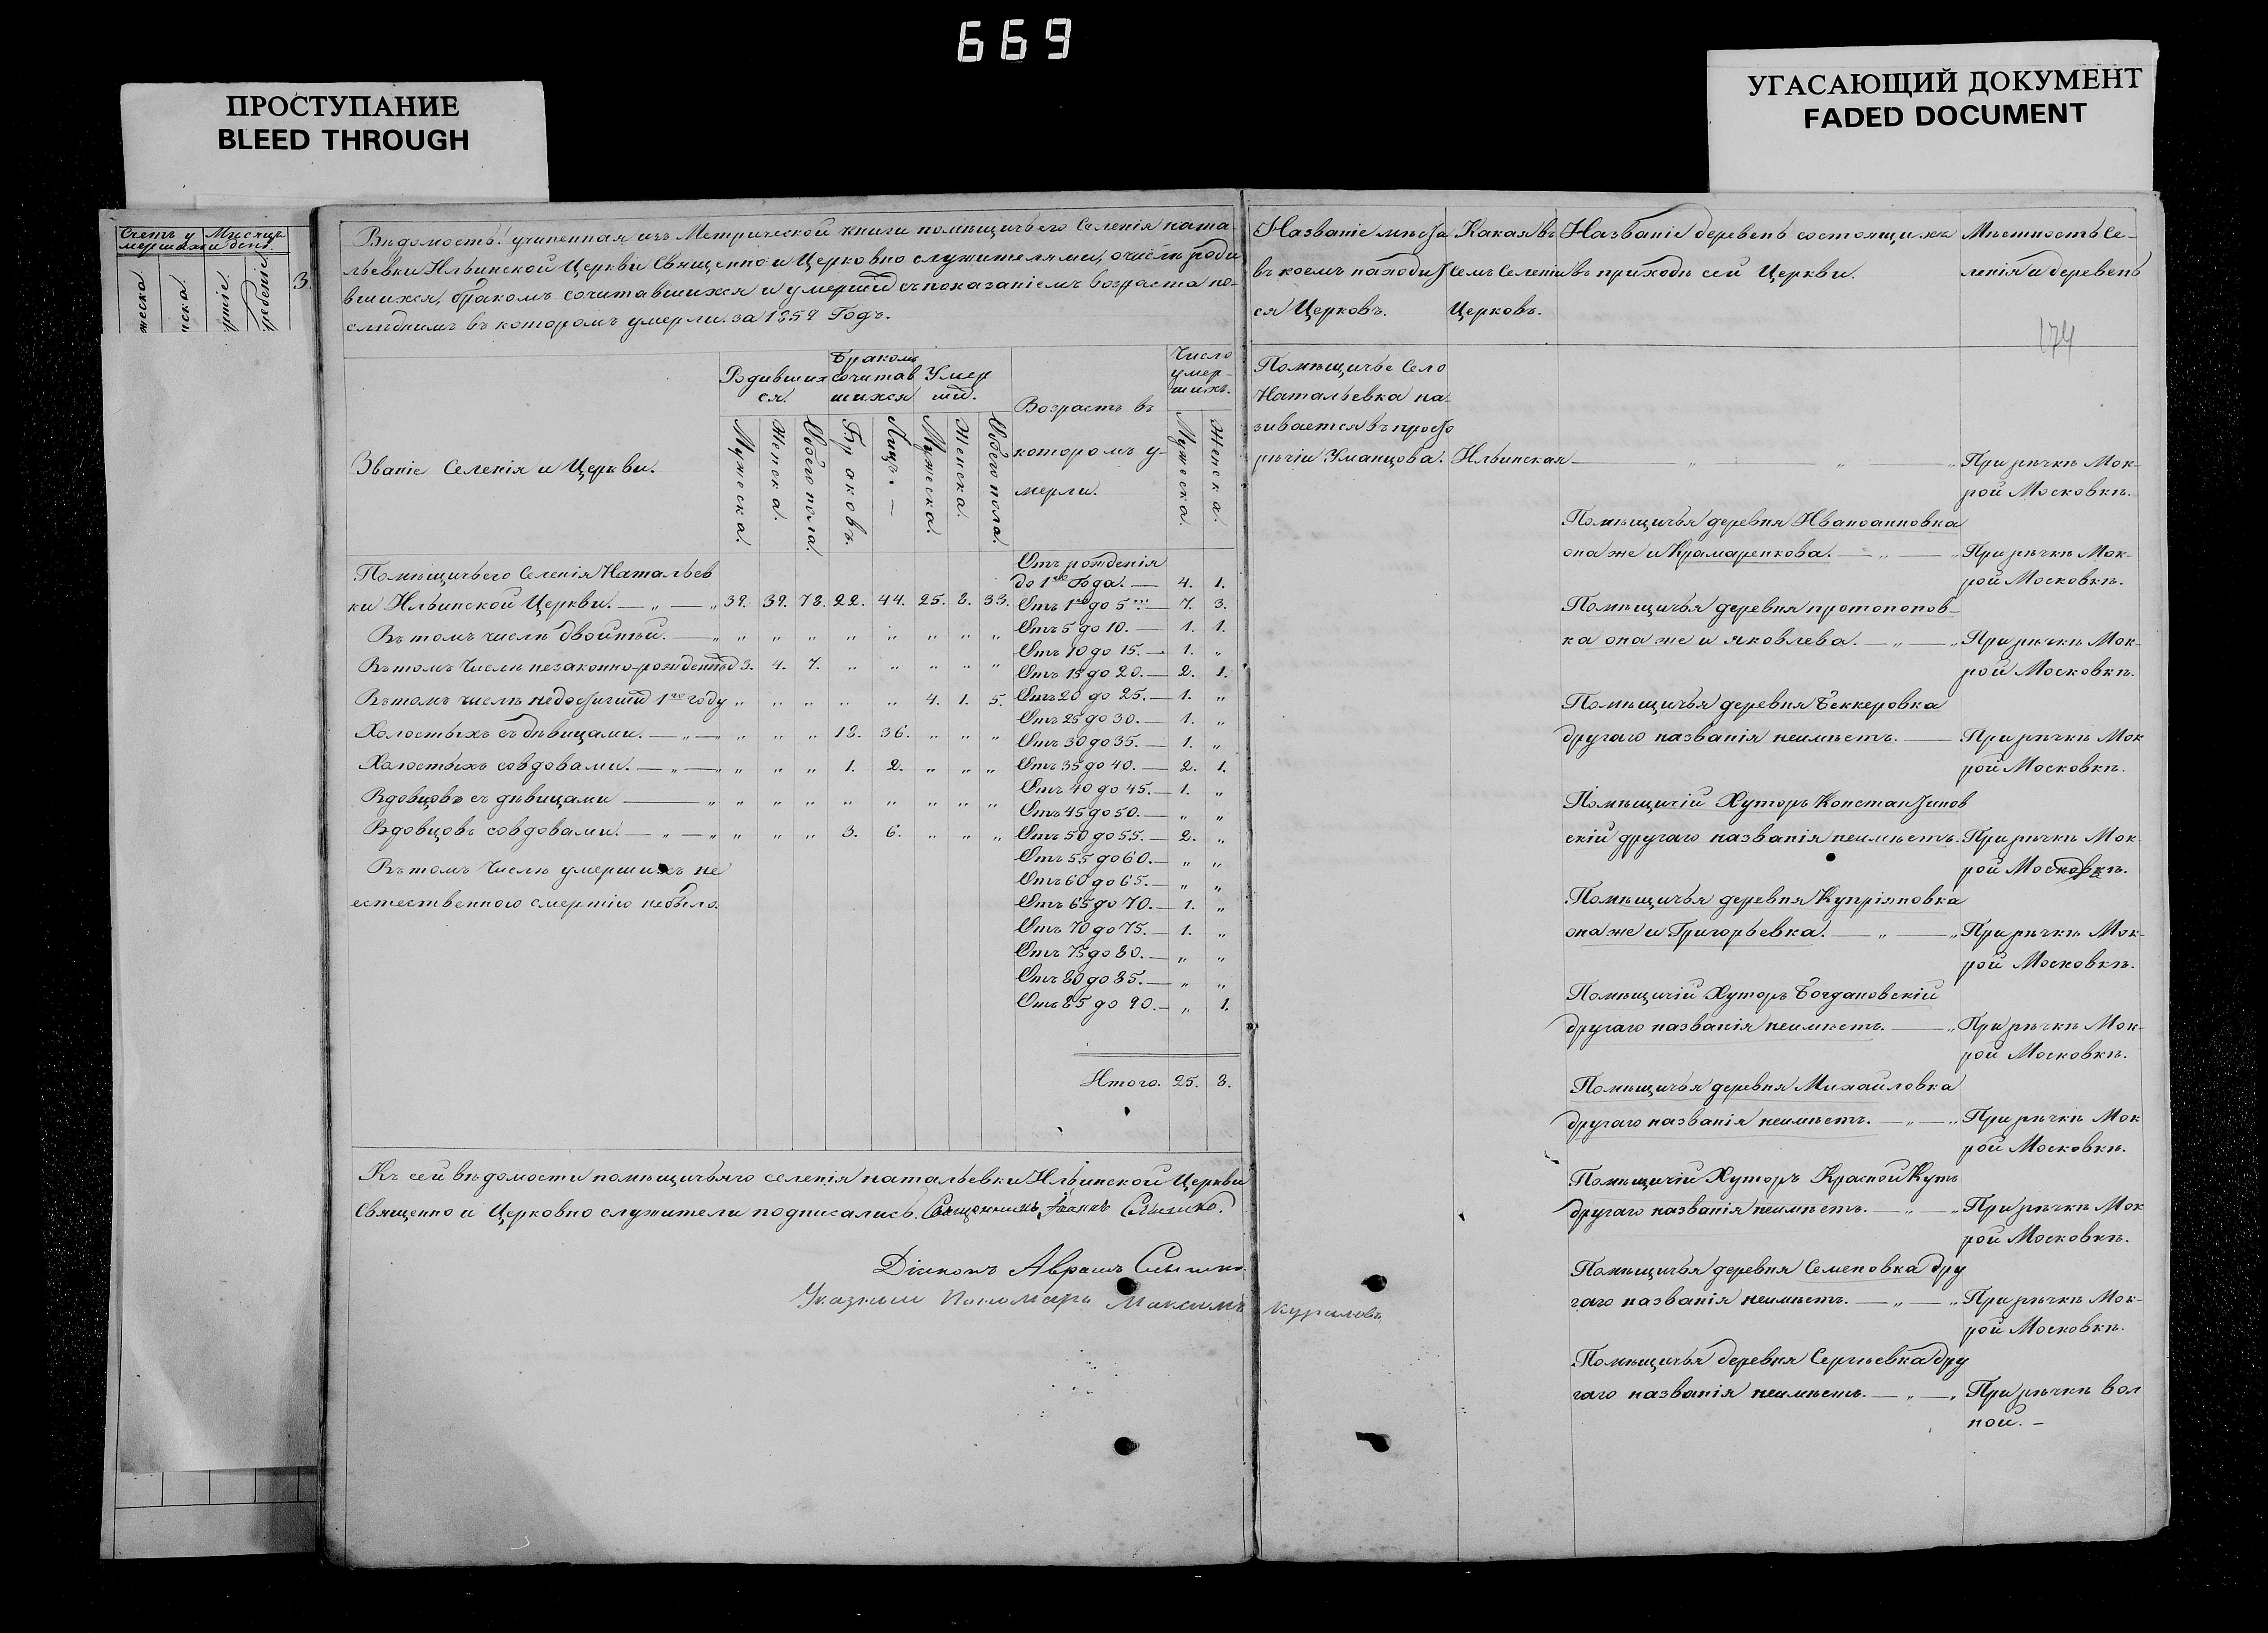 669
ПРОСТУПАНИЕ
BLEED THROUGH
УГАСАЮЩИЙ ДОКУМЕНТ
FADED DOCUMENT
Счетъ у Мѣсяцъ
мершихъ и день.
Вѣдомость! учиненная изъ Метрической книги помѣщичьего Селенія ната-
льевки Ильинской Церкви Священно и Церковно служителями, о числѣ роди
вшихся, бракомъ сочитавшихся и умерших съ показаніемъ возраста по-
слѣднимъ въ которомъ умерли. за 1859 Годъ.
Званіе Селенія и Церкви.
Родивших
ся.
Бракомъ
сочитав
шихся
Умер
ших.
Возрастъ въ
которомъ у-
мерли.
Число
умер-
шихъ.
Мужеска. Женска. Обоего пола. Браковъ. Лицъ. — Мужеска. Женска. Обоего пола. Мужеска. Женска.
Помѣщичьего Селенія Натальев
ки Ильинской Церкви. — „ — „ 39. 39. 78. 22. 44. 25. 8. 33.
Въ томъ числѣ двойней. — „ „ „ „ „ „ „ „ „
Въ томъ числѣ незаконно-рожденных 3. 4. 7. „ „ „ „ „
Въ томъ числѣ недостигших 1го году „ „ „ „ „ 4. 1. 5.
Холостыхъ съ дѣвицами. — „ — „ „ „ 18. 36. „ „ „
Холостыхъ совдовами. — „ — „ „ „ „ 1. 2. „ „ „
Вдовцовъ съ дѣвицами — „ „ „ „ „ „ „ „ „
Вдовцовъ совдовами. — „ — „ „ „ „ 3. 6. „ „ „
Въ томъ числѣ умершихъ не
естественною смертію небыло.
Отъ рожденія
до 1го Года. — 4. 1.
Отъ 1го до 5ти — 7. 3.
Отъ 5 до 10. — 1. 1.
Отъ 10 до 15. — 1. „
Отъ 15 до 20. — 2. 1.
Отъ 20 до 25. — 1. „
Отъ 25 до 30. — 1. „
Отъ 30 до 35. — 1. „
Отъ 35 до 40. — 2. 1.
Отъ 40 до 45. — 1. „
Отъ 45 до 50. — „ „
Отъ 50 до 55. — 2. „
Отъ 55 до 60. — „ „
Отъ 60 до 65. — „ „
Отъ 65 до 70. — 1. „
Отъ 70 до 75. — 1. „
Отъ 75 до 80. — „ „
Отъ 80 до 85. — „ „
Отъ 85 до 90. — „ 1.
Итого. 25. 8.
Къ сей вѣдомости помѣщичьяго селенія натальевки Ильинской Церкви
Священно и Церковно служители подписались. Священникъ Іоаннъ
Діаконъ Аврамъ
Указный Пономарь Максимъ Куриловъ
Названіе мѣста
въ коемъ находит
ся Церковь.
Какая въ
семъ Селеніи
Церковь.
Названіе деревень состоящихъ
въ приходѣ сей Церкви.
Мѣстность Се-
ленія и деревень
174
Помѣщичье Село
Натальевка на-
зивается въ просто
рѣчіи Уманцова. Ильинская — „ — „ — „ При рѣчкѣ Мок-
рой Московкѣ.
Помѣщичья деревня Иваноанновка
она же и Крамаренкова. — „ — „ При рѣчкѣ Мок-
рой Московкѣ.
Помѣщичья деревня протопопов-
ка она же и яковлева. — „ — „ При рѣчкѣ Мок-
рой Московкѣ.
Помѣщичья деревня Беккеровка
другаго названія неимѣетъ. — При рѣчкѣ Мок
рой Московкѣ.
Помѣщичій Хуторъ Константинов
скій другаго названія неимѣетъ. При рѣчкѣ Мок
рой Московкѣ.
Помѣщичья деревня Купріяновка
она же и Григорьевка. — „ — „ При рѣчкѣ Мок-
рой Московкѣ.
Помѣщичій Хуторъ Богдановскій
другаго названія неимѣетъ. — „ При рѣчкѣ Мок-
рой Московкѣ.
Помѣщичья деревня Михайловка
другаго названія неимѣетъ. — „ — „ При рѣчкѣ Мок
рой Московкѣ.
Помѣщичій Хуторъ Красной Кутъ
другаго названія неимѣетъ. — „ — „ При рѣчкѣ Мок
рой Московкѣ.
Помѣщичья деревня Семеновка дру
гаго названія неимѣетъ. — „ — „ При рѣчкѣ Мок-
рой Московкѣ.
Помѣщичья деревня Сергѣевка дру
гаго названія неимѣетъ. — „ — „ При рѣчкѣ вол
ной. —